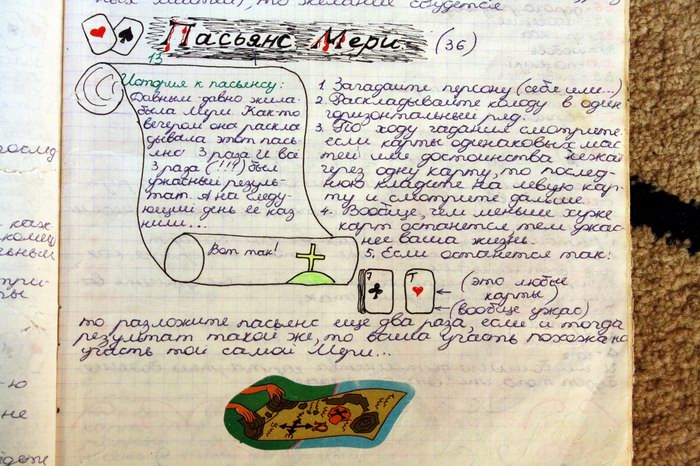 ных мастей, то желание сбудется
Пасьянс Мери (36)
13
История к пасьянсу:
Давным давно жила-
была Мери. Как-то
вечером она раскла
дывала этот пась
янс 3 раза И все
3 раза (!!!) был
ужасный резуль-
тат. А на следу
ющий день ее каз
нили...
Вот так!
1 Загадайте персону (себе или...)
2. Раскладывайте колоду в один
горизонтальный ряд.
3. По ходу гадания смотрите
если карты одинаковых мас
тей или достоинства лежат
через одну карту, то послед-
нюю кладите на левую кар-
ту и смотрите дальше.
4. Вообще, чем меньше
карт останется, тем ужас-
нее ваша жизнь.
5. Если останется так:
Т
(это любые
карты)
(вообще ужас)
то разложите пасьянс еще два раза, если и тогда
результат такой же, то ваша участь похожа на
участь той самой Мери...
послед
каж
три-
ты
-ю
не